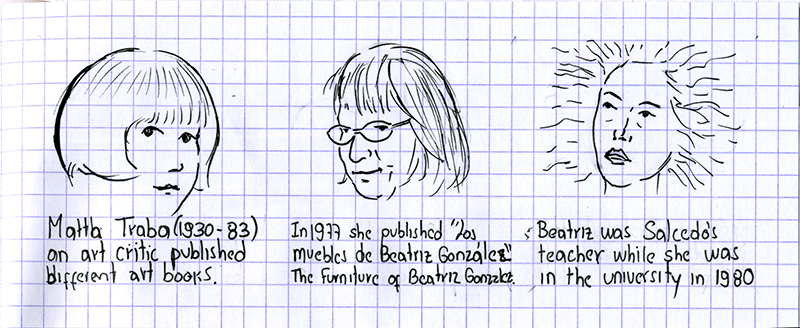 Marta Traba (1930-83)
an art critic published
different art books.
In 1977 she published "Los
muebles de Beatriz González"
The Furniture of Beatriz González.
Beatriz was Salcedo's
teacher while she was
in the university in 1980